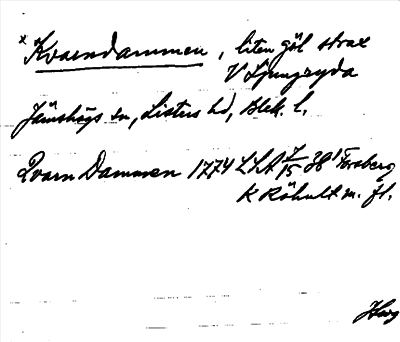 x Kvarndammen, liten göl strax
V Ljungryda
Jämshögs sn, Listers hd, Blek. l.
Qvarn Dammen 1774 LHA 7/15 38 Forsberg
K Röhult m. fl.